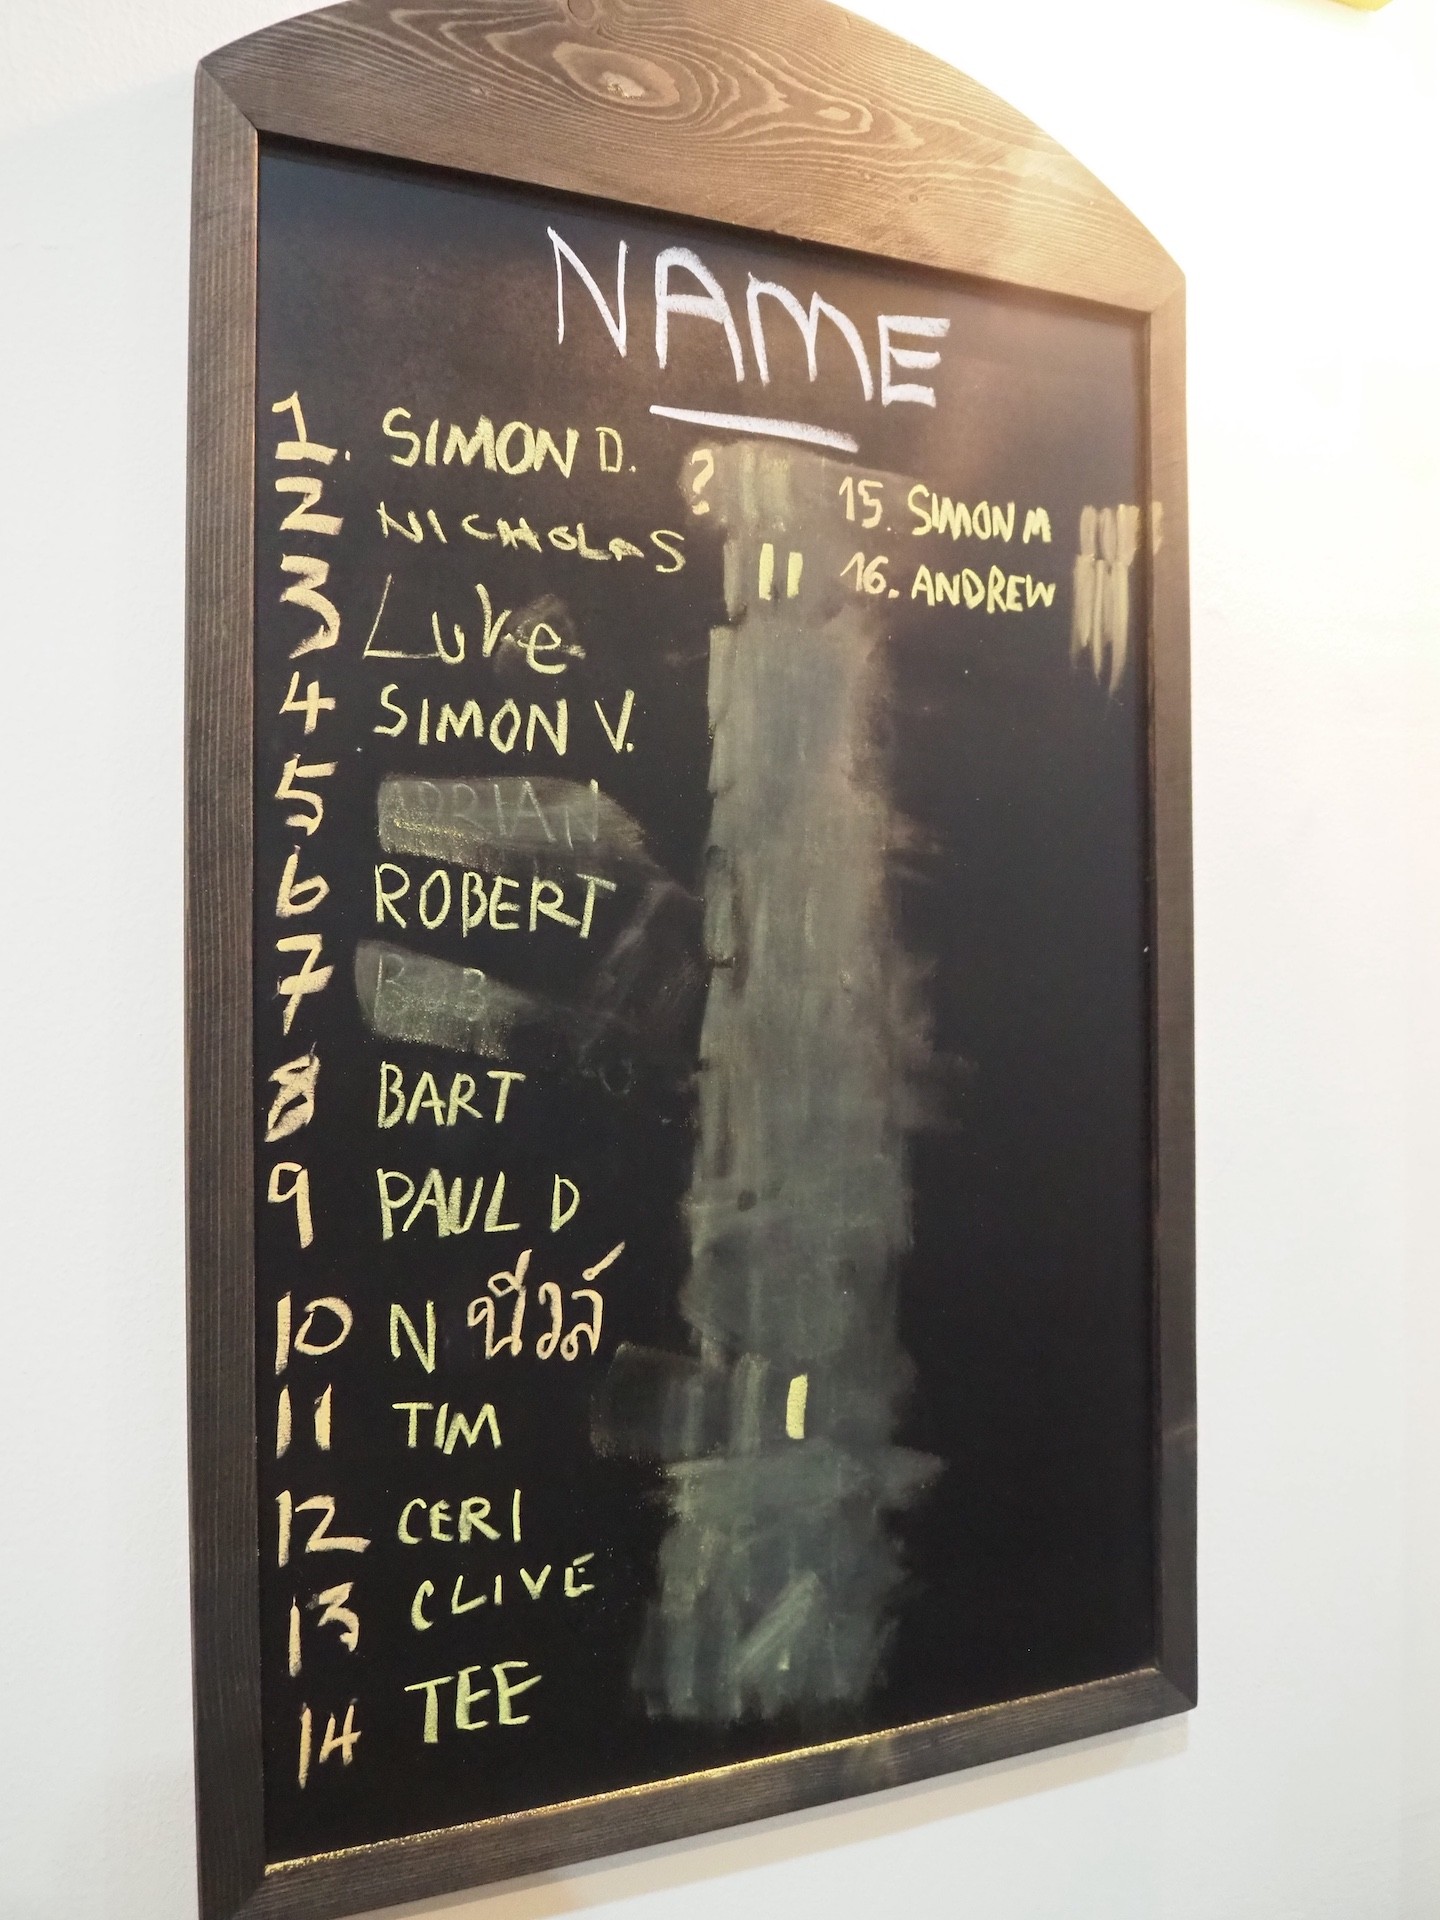 NAME
1. SIMON D. ?
2 NICHOLAS II
3 Luke
4 SIMON V.
5 ADRIAN
6 ROBERT
7 BOB
8 BART
9 PAUL D
10 N นีวล์
11 TIM I
12 CERI
13 CLIVE
14 TEE
15. SIMON M
16. ANDREW